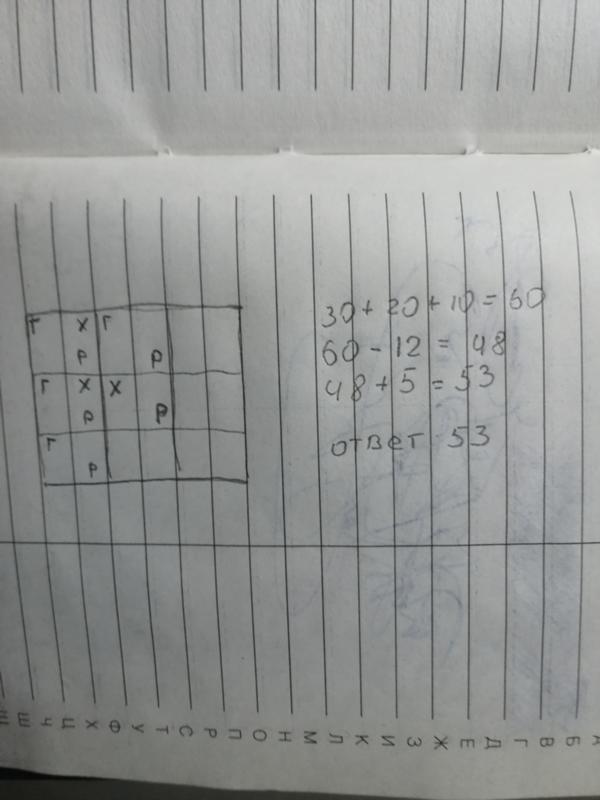 г х г
р р
г х х
р р
г
р
30 + 20 + 10 = 60
60 - 12 = 48
48 + 5 = 53
ответ 53
А
Б
В
Г
Д
Е
Ж
З
И
К
Л
М
Н
О
П
Р
С
Т
У
Ф
Х
Ц
Ч
Ш
Щ